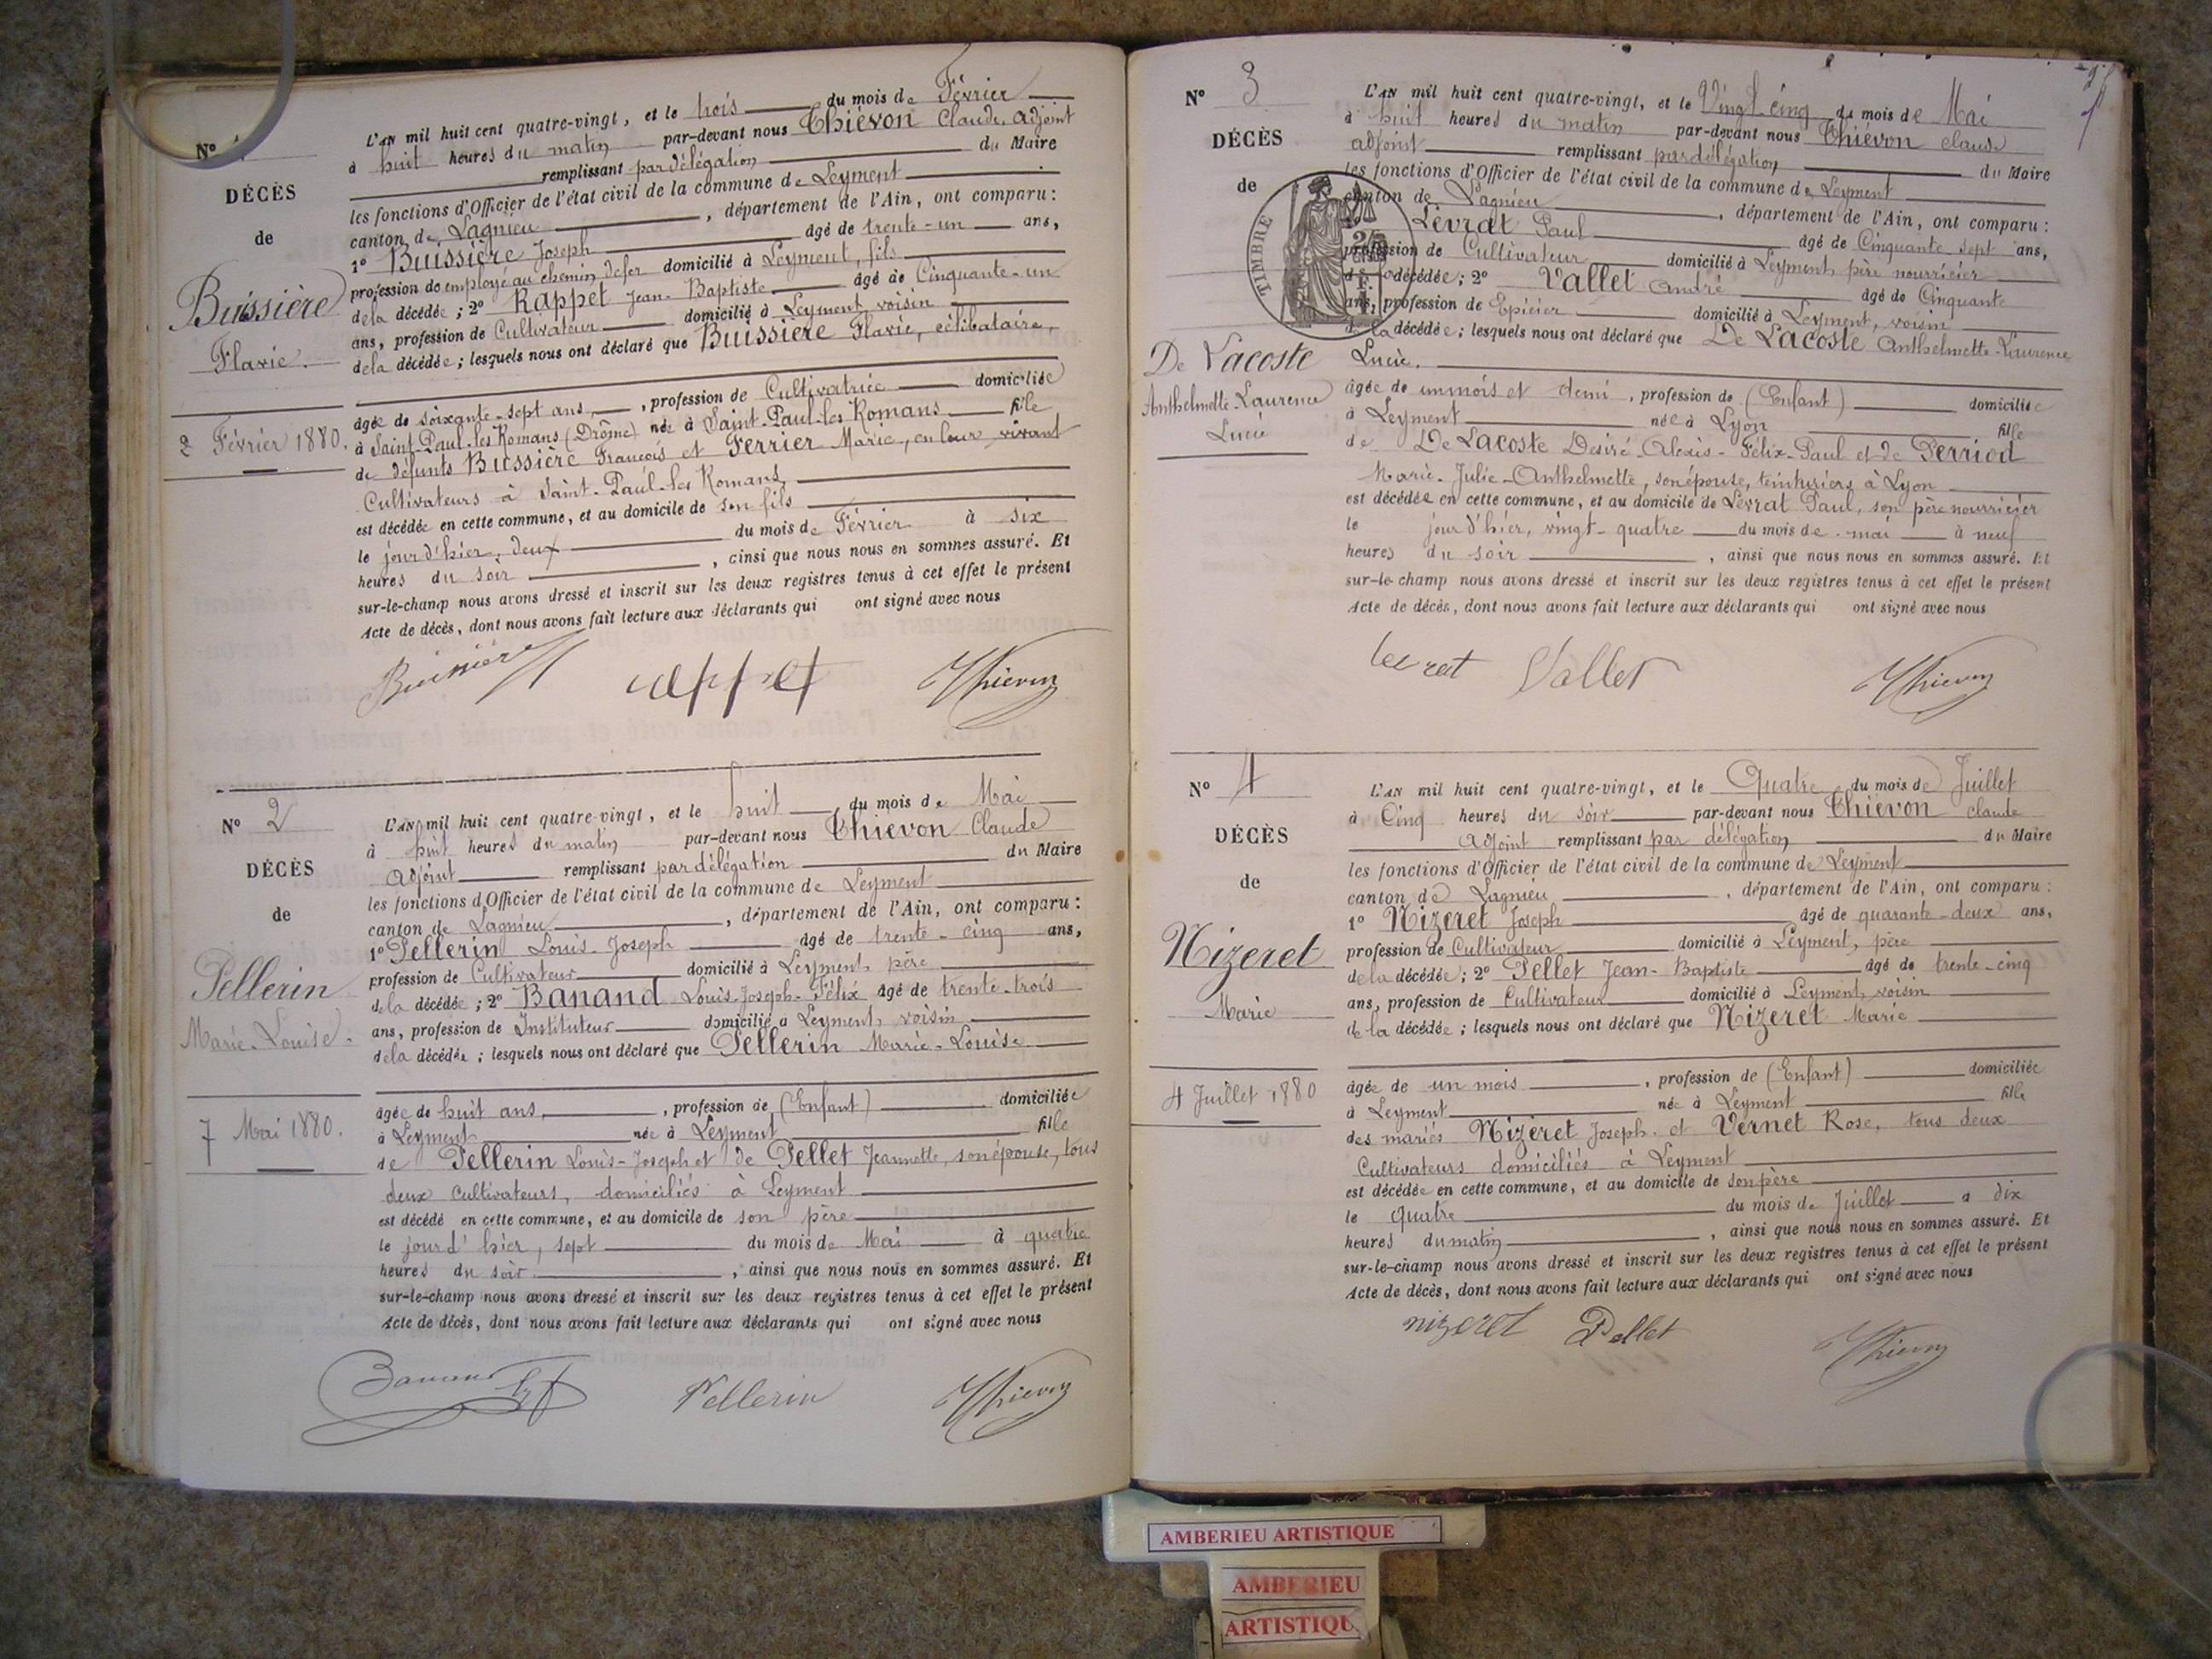 L'AN mil huit cent quatre-vingt, et le trois du mois de Février
à huit heures du matin par-devant nous Thiévon Claude, adjoint
remplissant par délégation du Maire
les fonctions d'Officier de l'état civil de la commune de Leyment
canton de Lagnieu, département de l'Ain, ont comparu :
1° Buissière Joseph âgé de trente-un ans,
profession de employé au chemin de fer domicilié à Leyment, fils
de la décédée ; 2° Rappet Jean-Baptiste âgé de Cinquante-un
ans, profession de Cultivateur domicilié à Leyment, voisin
de la décédée ; lesquels nous ont déclaré que Buissière Flavie, célibataire,
âgée de soixante-sept ans, profession de Cultivatrice domiciliée
à Saint-Paul-les Romans (Drôme) née à Saint-Paul-les Romans fille
de défunts Buissière François et Ferrier Marie, en leur vivant
Cultivateurs à Saint-Paul-les Romans
est décédée en cette commune, et au domicile de son fils
le jour d'hier, deux du mois de Février à six
heures du soir, ainsi que nous nous en sommes assuré. Et
sur-le-champ nous avons dressé et inscrit sur les deux registres tenus à cet effet le présent
Acte de décès, dont nous avons fait lecture aux déclarants qui ont signé avec nous
N°
DÉCÈS
de
Buissière
Flavie.
2 Février 1880.
Buissière Rappet Thievon
N° 2
DÉCÈS
de
Pellerin
Marie-Louise.
7 Mai 1880.
L'AN mil huit cent quatre-vingt, et le huit du mois de Mai
à huit heures du matin par-devant nous Thievon Claude
adjoint remplissant par délégation du Maire
les fonctions d'Officier de l'état civil de la commune de Leyment
canton de Lagnieu, département de l'Ain, ont comparu :
1° Pellerin Louis-Joseph âgé de trente-cinq ans,
profession de Cultivateur domicilié à Leyment, père
de la décédée ; 2° Banand Louis-Joseph-Félix âgé de trente-trois
ans, profession de Instituteur domicilié à Leyment, voisin
de la décédée ; lesquels nous ont déclaré que Pellerin Marie-Louise
âgée de huit ans, profession de (Enfant) domiciliée
à Leyment née à Leyment fille
de Pellerin Louis-Joseph et de Pellet Jeannette, son épouse, tous
deux cultivateurs, domiciliés à Leyment
est décédé en cette commune, et au domicile de son père
le jour d'hier, sept du mois de Mai à quatre
heures du soir, ainsi que nous nous en sommes assuré. Et
sur-le-champ nous avons dressé et inscrit sur les deux registres tenus à cet effet le présent
Acte de décès, dont nous avons fait lecture aux déclarants qui ont signé avec nous
Banand Pellerin Thievon
N° 3
DÉCÈS
de
De Lacoste
Anthelmette-Laurence
Lucie
TIMBRE
L'AN mil huit cent quatre-vingt, et le Vingt-cinq du mois de Mai
à huit heures du matin par-devant nous Thiévon claude
adjoint remplissant par délégation du Maire
les fonctions d'Officier de l'état civil de la commune de Leyment
canton de Lagnieu, département de l'Ain, ont comparu :
Levrat Paul âgé de Cinquante-sept ans,
profession de Cultivateur domicilié à Leyment, père nourricier
décédée ; 2° Vallet André âgé de Cinquante
ans, profession de Epicier domicilié à Leyment, voisin
de la décédée ; lesquels nous ont déclaré que De Lacoste Anthelmette-Laurence
Lucie.
âgée de un mois et demi, profession de (Enfant) domiciliée
à Leyment née à Lyon fille
de De Lacoste Desiré-Alexis-Félix-Paul et de Perriod
Marie-Julie-Anthelmette, son épouse, teinturiers à Lyon
est décédée en cette commune, et au domicile de Levrat Paul, son père nourricier
le jour d'hier, vingt-quatre du mois de mai à neuf
heures du soir, ainsi que nous nous en sommes assuré. Et
sur-le-champ nous avons dressé et inscrit sur les deux registres tenus à cet effet le présent
Acte de décès, dont nous avons fait lecture aux déclarants qui ont signé avec nous
Levrat Vallet Thievon
N° 4
DÉCÈS
de
Nizeret
Marie
4 Juillet 1880
L'AN mil huit cent quatre-vingt, et le Quatre du mois de Juillet
à Cinq heures du soir par-devant nous Thievon claude
adjoint remplissant par délégation du Maire
les fonctions d'Officier de l'état civil de la commune de Leyment
canton de Lagnieu, département de l'Ain, ont comparu :
1° Nizeret Joseph âgé de quarante-deux ans,
profession de Cultivateur domicilié à Leyment, père
de la décédée ; 2° Pellet Jean-Baptiste âgé de trente-cinq
ans, profession de Cultivateur domicilié à Leyment, voisin
de la décédée ; lesquels nous ont déclaré que Nizeret Marie
âgée de un mois, profession de (Enfant) domiciliée
à Leyment née à Leyment fille
des mariés Nizeret Joseph et Vernet Rose, tous deux
Cultivateurs domiciliés à Leyment
est décédée en cette commune, et au domicile de son père
le quatre du mois de Juillet à dix
heures du matin, ainsi que nous nous en sommes assuré. Et
sur-le-champ nous avons dressé et inscrit sur les deux registres tenus à cet effet le présent
Acte de décès, dont nous avons fait lecture aux déclarants qui ont signé avec nous
nizeret Pellet Thievon
AMBERIEU ARTISTIQUE
AMBERIEU
ARTISTIQU